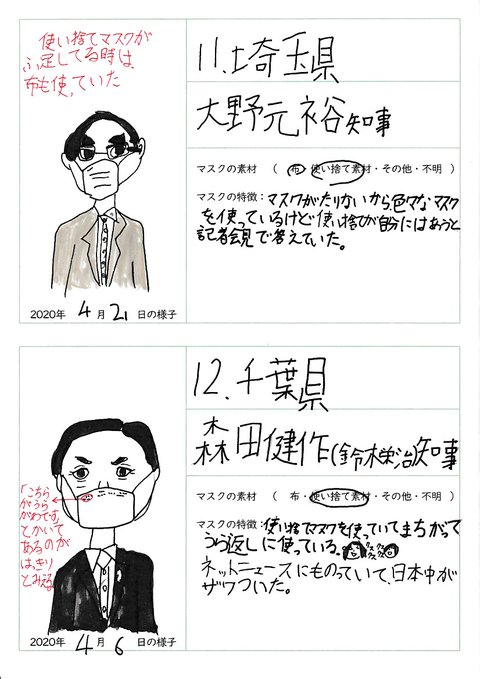 使い捨てマスクが
ふ足してる時は
布も使っていた
2020年 4月 21日の様子
11.埼玉県
大野元裕知事
マスクの素材 （ 布・使い捨て素材・その他・不明 ）
マスクの特徴：マスクがたりないから、色々なマスク
を使っているけど使い捨てが自分にはあうと
記者会見で答えていた。
「こちら
がうら
がわです」
とかいて
あるのが
はっきり
とみえる
2020年 4月 6日の様子
12.千葉県
森田健作(鈴木栄治)知事
マスクの素材 （ 布・使い捨て素材・その他・不明 ）
マスクの特徴：使い捨てマスクを使っていてまちがって
うら返しに使っている。
ネットニュースにものっていて、日本中が
ザワついた。